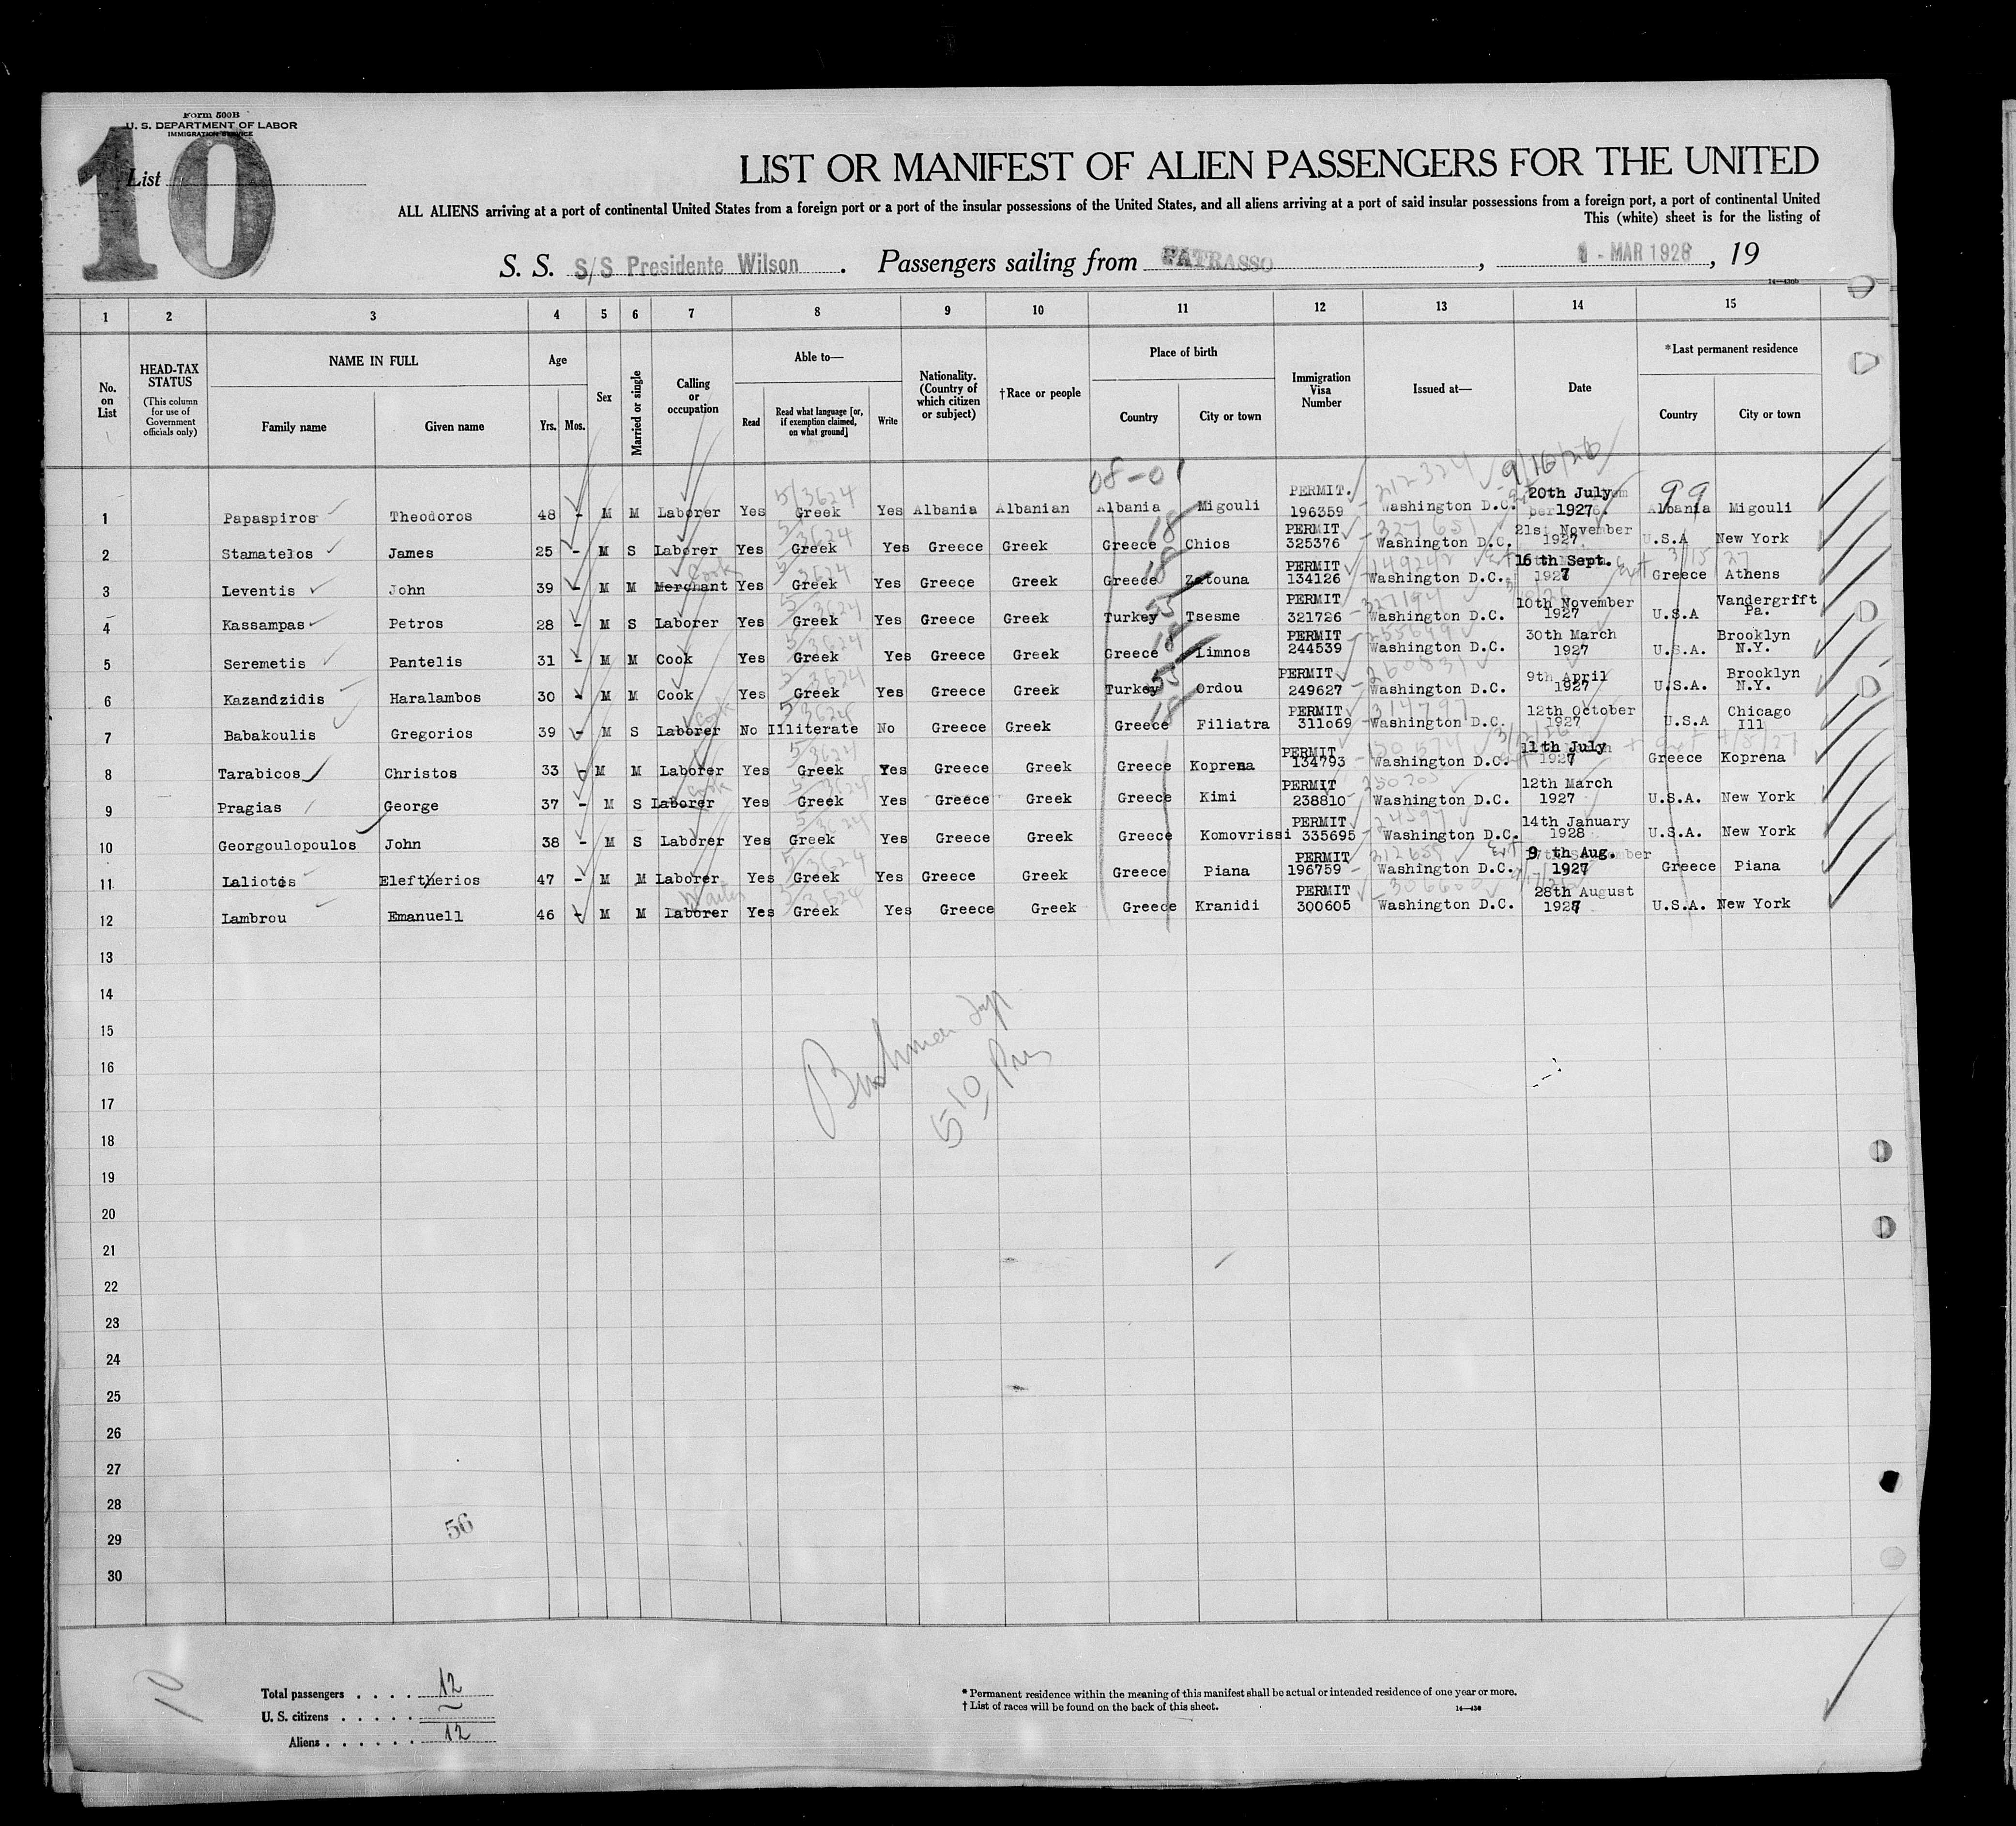 Form 500B
U. S. DEPARTMENT OF LABOR
IMMIGRATION SERVICE
List
10
LIST OR MANIFEST OF ALIEN PASSENGERS FOR THE UNITED
ALL ALIENS arriving at a port of continental United States from a foreign port or a port of the insular possessions of the United States, and all aliens arriving at a port of said insular possessions from a foreign port, a port of continental United
This (white) sheet is for the listing of
S. S. S/S Presidente Wilson . Passengers sailing from PATRASSO , 1 - MAR 1928 , 19
14—430b
1 2 3 4 5 6 7 8 9 10 11 12 13 14 15
No. on List
HEAD-TAX STATUS (This column for use of Government officials only)
NAME IN FULL Family name Given name
Age Yrs. Mos.
Sex
Married or single
Calling or occupation
Able to— Read Read what language [or, if exemption claimed, on what ground] Write
Nationality. (Country of which citizen or subject)
†Race or people
Place of birth Country City or town
Immigration Visa Number
Issued at—
Date
*Last permanent residence Country City or town
08-01 9/16/26 99
1 Papaspiros Theodoros 48 - M M Laborer Yes Greek Yes Albania Albanian Albania Migouli PERMIT. 196359 Washington D.C. 20th July 1927 Albania Migouli
2 Stamatelos James 25 - M S Laborer Yes Greek Yes Greece Greek Greece Chios PERMIT 325376 Washington D.C. 21st November 1927 U.S.A New York
3 Leventis John 39 - M M Merchant Yes Greek Yes Greece Greek Greece Zatouna PERMIT 134126 Washington D.C. 16th Sept. 1927 Greece Athens
4 Kassampas Petros 28 - M S Laborer Yes Greek Yes Greece Greek Turkey Tsesme PERMIT 321726 Washington D.C. 10th November 1927 U.S.A Vandergrfft Pa.
5 Seremetis Pantelis 31 - M M Cook Yes Greek Yes Greece Greek Greece Limnos PERMIT 244539 Washington D.C. 30th March 1927 U.S.A. Brooklyn N.Y.
6 Kazandzidis Haralambos 30 - M M Cook Yes Greek Yes Greece Greek Turkey Ordou PERMIT 249627 Washington D.C. 9th April 1927 U.S.A. Brooklyn N.Y.
7 Babakoulis Gregorios 39 - M S Laborer No Illiterate No Greece Greek Greece Filiatra PERMIT 311o69 Washington D.C. 12th October 1927 U.S.A Chicago Ill
8 Tarabicos Christos 33 - M M Laborer Yes Greek Yes Greece Greek Greece Koprena PERMIT 134793 Washington D.C. 11th July 1927 Greece Koprena
9 Pragias George 37 - M S Laborer Yes Greek Yes Greece Greek Greece Kimi PERMIT 238810 Washington D.C. 12th March 1927 U.S.A. New York
10 Georgoulopoulos John 38 - M S Laborer Yes Greek Yes Greece Greek Greece Komovrissi PERMIT 335695 Washington D.C. 14th January 1928 U.S.A. New York
11 Laliotes Eleftherios 47 - M M Laborer Yes Greek Yes Greece Greek Greece Piana PERMIT 196759 Washington D.C. 9 th Aug. 1927 Greece Piana
12 Lambrou Emanuell 46 - M M Laborer Yes Greek Yes Greece Greek Greece Kranidi PERMIT 300605 Washington D.C. 28th August 1927 U.S.A. New York
13
14
15
16
17
18
19
20
21
22
23
24
25
26
27
28
56
29
30
10
Total passengers . . . . 12
U. S. citizens . . . . .
Aliens . . . . . . 12
* Permanent residence within the meaning of this manifest shall be actual or intended residence of one year or more.
† List of races will be found on the back of this sheet.
14—430